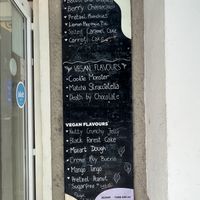 Berry Cheesecake
Pretzel
Lemon Meringue Pie
Salted Caramel Cake
Carrot Cake
VEGAN FLAVOURS
Cookie Monster
Matcha Stracciatella
Death by Chocolate
VEGAN FLAVOURS
Nutty Crunchy Jelly
Black Forest Cake
Mozart Dough
Creme Bueno
Mango Tango
Pretzel Peanut
Sugarfree